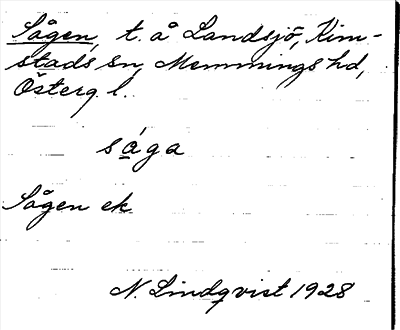 Sågen, t. å Landsjö, Kim-
stads sn, Memmings hd,
Österg. l.
sága
Sågen ek.
N. Lindqvist 1928